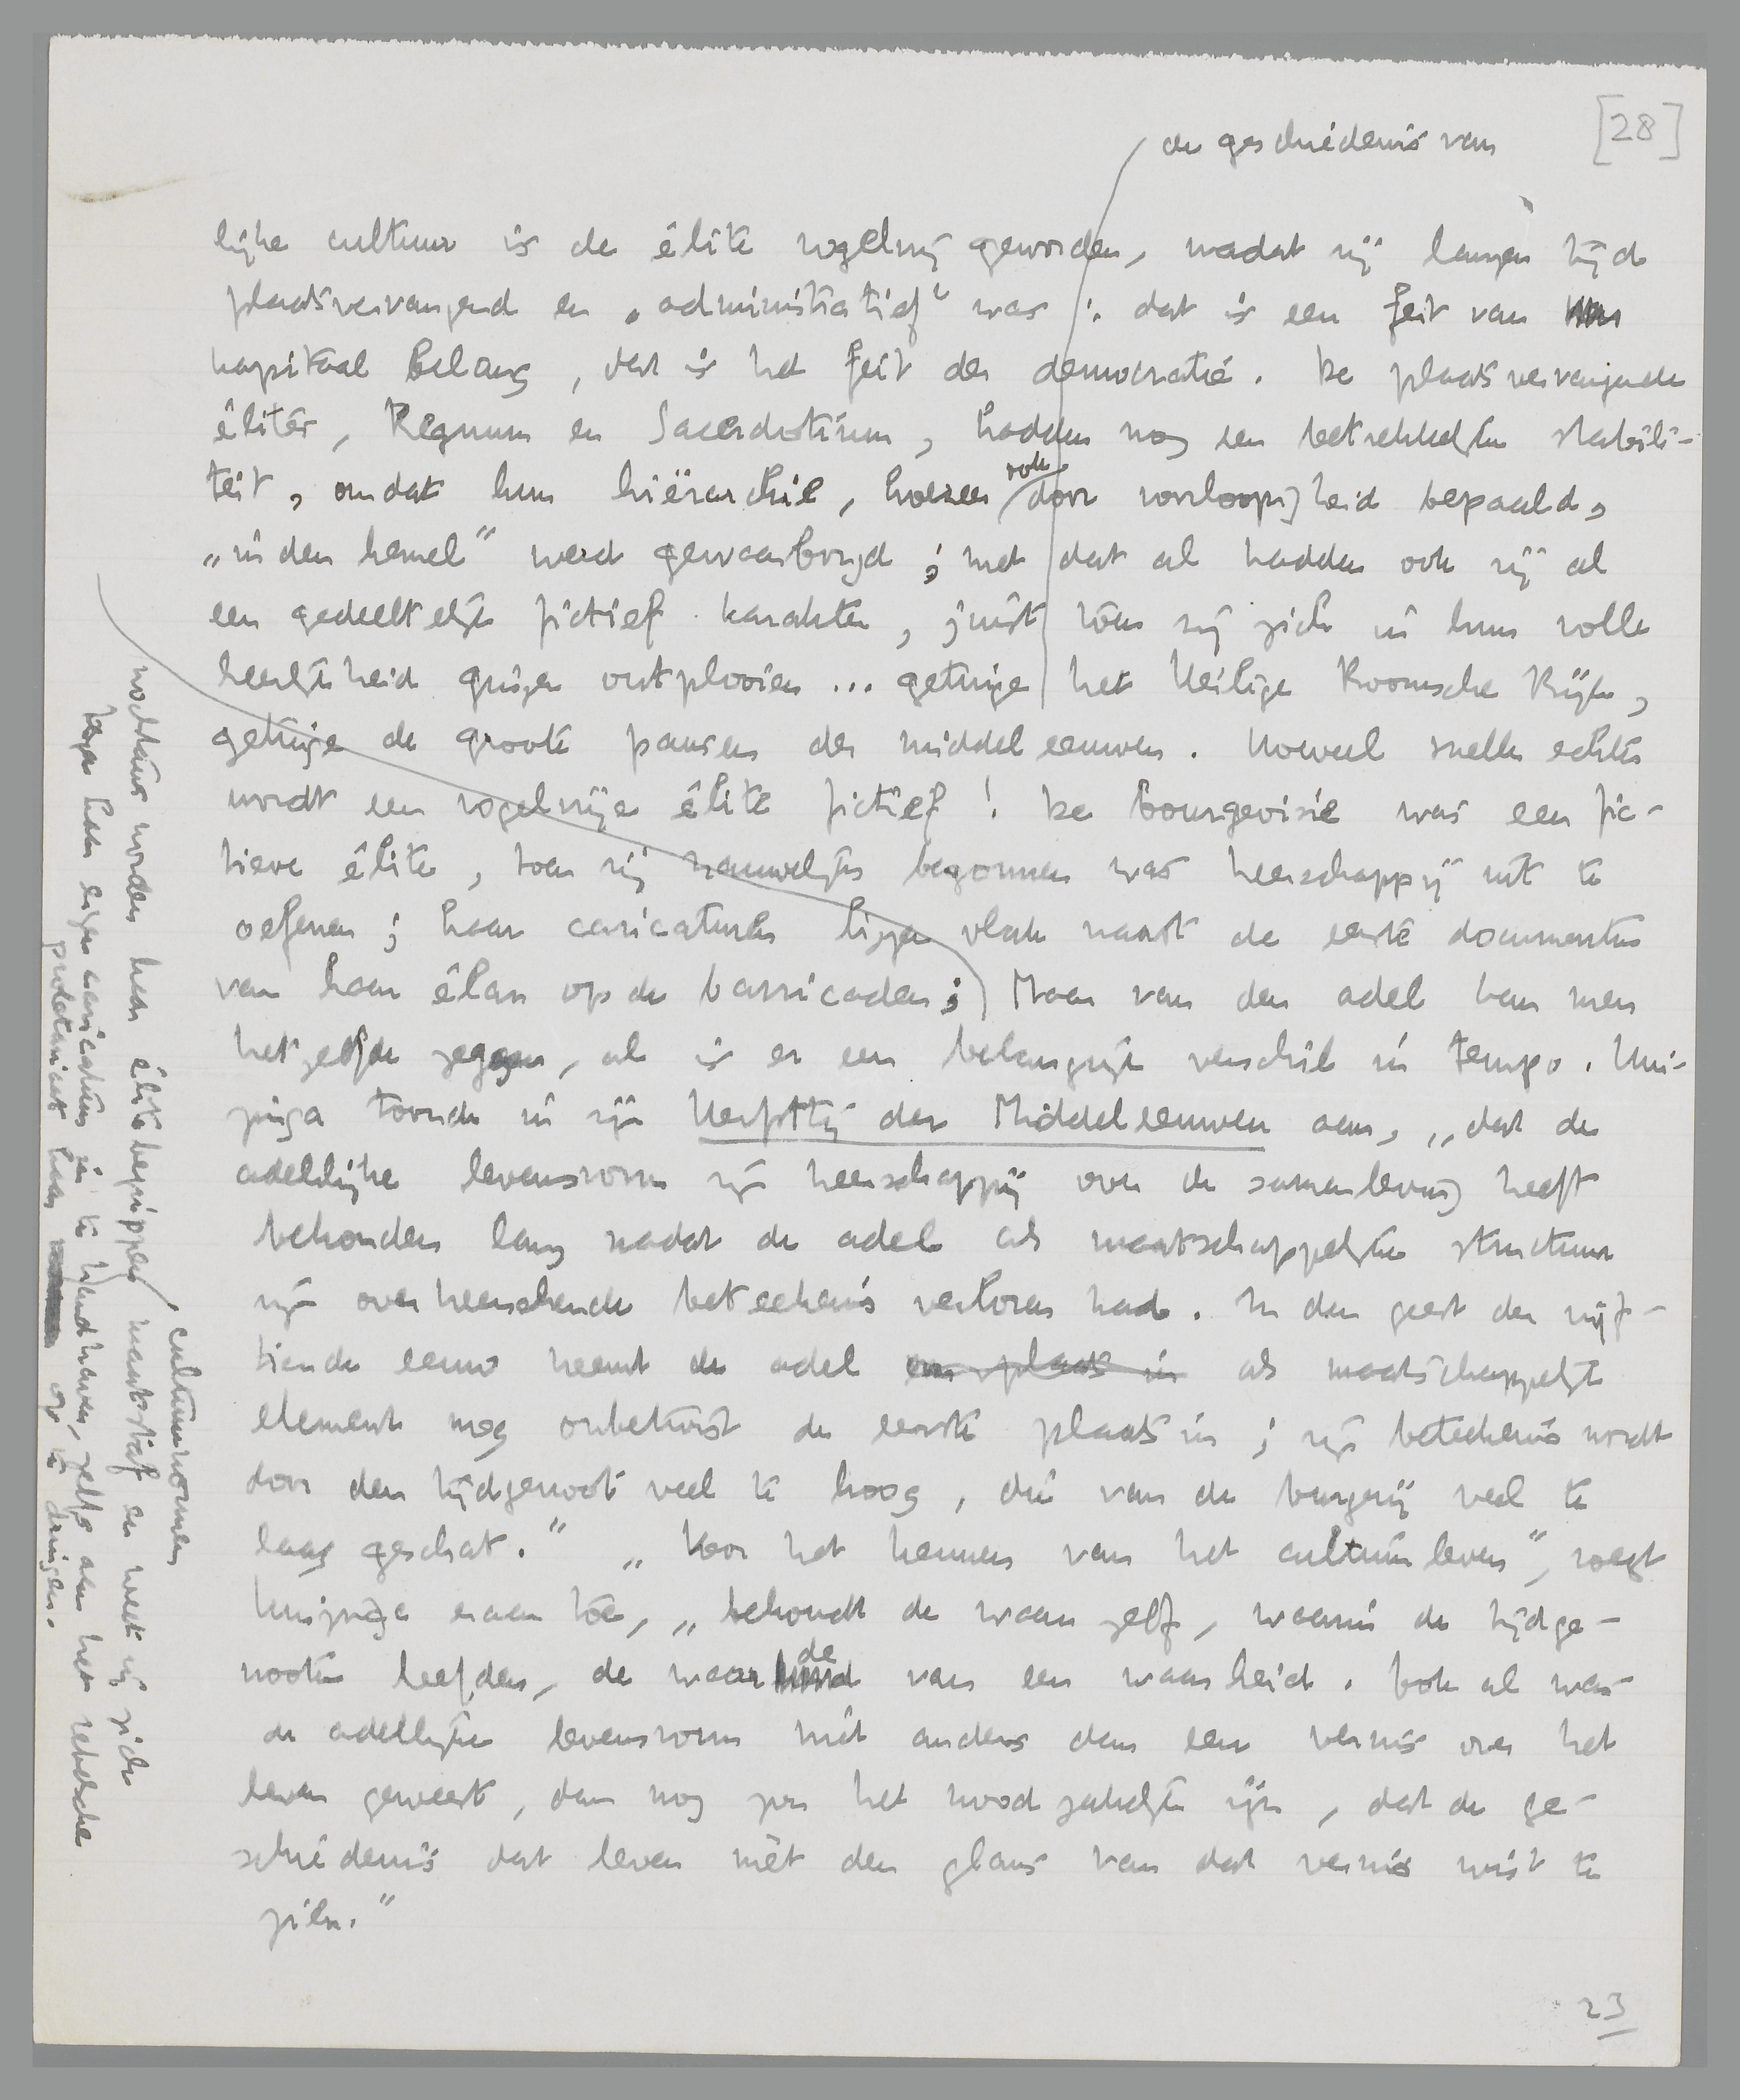 [28]
de geschiedenis van
lijke cultuur is de élite vogelvrij geworden, nadat zij langen tijd
plaatsvervangend en „administratief" was; dat is een feit van
kapitaal belang, dat is het feit der democratie. De plaatsvervangende
élites, Regnum en Sacerdotium, hadden nog een betrekkelijke stabili-
teit, omdat hun hiërarchie, hoezeer ook door voorloopigheid bepaald,
„in den hemel" werd gewaarborgd; met dat al hadden ook zij al
een gedeeltelijk fictief karakter, juist toen zij zich in hun volle
heerlijkheid gingen ontplooien... getuige het Heilige Roomsche Rijk,
getuige de groote pausen der middeleeuwen. Hoeveel sneller echter
wordt een vogelvrije élite fictief! De bourgeoisie was een fic-
tieve élite, toen zij nauwelijks begonnen was heerschappij uit te
oefenen; haar caricaturen liggen vlak naast de eerste documenten
van haar élan op de barricaden; Maar van den adel kan men
hetzelfde zeggen, al is er een belangrijk verschil in tempo. Hui-
zinga toonde in zijn Herfsttij der Middeleeuwen aan, „dat de
adellijke levensvorm zijn heerschappij over de samenleving heeft
behouden lang nadat de adel als maatschappelijke structuur
zijn overheerschende beteekenis verloren had. In den geest der vijf-
tiende eeuw neemt de adel een plaats in als maatschappelijk
element nog onbetwist de eerste plaats in; zijn beteekenis wordt
door den tijdgenoot veel te hoog, die van de burgerij veel te
laag geschat." „Voor het kennen van het cultuurleven", voegt
Huizinga eraan toe, „behoudt de waan zelf, waarin de tijdge-
nooten leefden, de waarde van een waarheid. Ook al was
de adellijke levensvorm niet anders dan een vernis over het
leven geweest, dan nog zou het noodzakelijk zijn, dat de ge-
schiedenis dat leven mèt den glans van dat vernis wist te
zien."
nochtans worden haar élitebegrippen maatstaf en weet zij zich
cultuurnormen
tegen haar eigen caricaturen in te handhaven, zelfs aan het
proletariaat haar op te dringen.
23